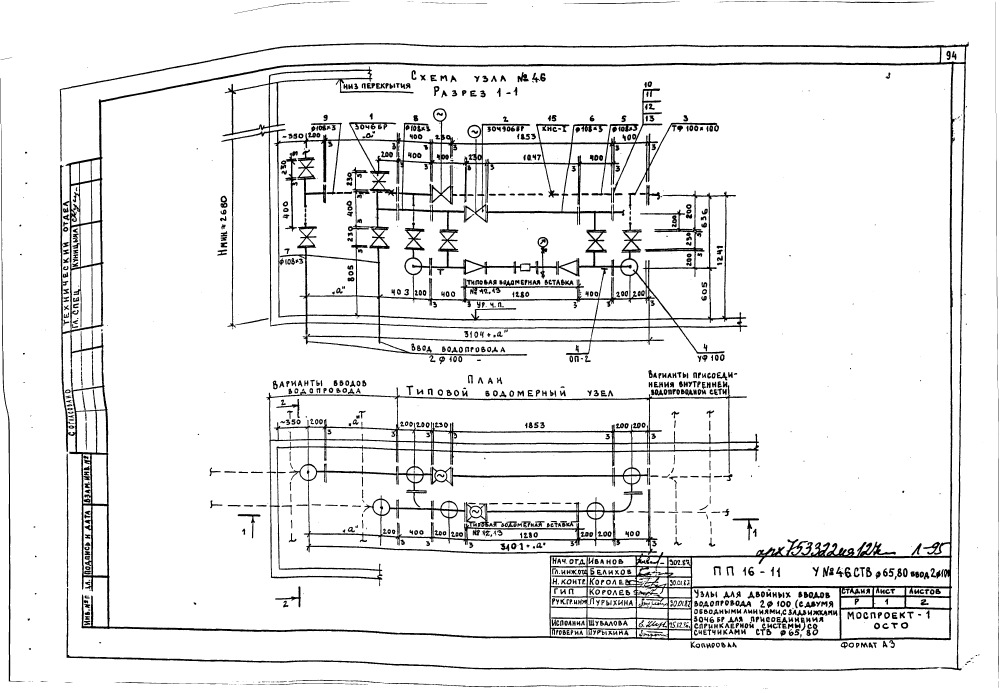 94
СХЕМА УЗЛА № 46
РАЗРЕЗ 1-1
НИЗ ПЕРЕКРЫТИЯ
10
11
12
13
9 1 8 2 15 6 5 3
ф108×3 30Ч6БР ф108×3 30Ч906БР КНС-I ф108×3 ф108×3 ТФ 100×100
~350 200 „а" 400 230 1853 400
200 400 400 230 1047 400
230 400 230
230 400 230 805
200 230 200 636 605 1241
Нмин = 2680
7
ф108×3
„а" 403 200 400 1280 400 200 200
ТИПОВАЯ ВОДОМЕРНАЯ ВСТАВКА
№ 12,13
УР. Ч.П.
3104 + „а"
ВВОД ВОДОПРОВОДА
2 ф 100
4
ОП-2
4
УФ 100
ПЛАН
ВАРИАНТЫ ВВОДОВ
ВОДОПРОВОДА
ТИПОВОЙ ВОДОМЕРНЫЙ УЗЕЛ
ВАРИАНТЫ ПРИСОЕДИ-
НЕНИЯ ВНУТРЕННЕЙ
ВОДОПРОВОДНОЙ СЕТИ
2
~350 200 „а" 200 200 230 1853 200 200
ТИПОВАЯ ВОДОМЕРНАЯ ВСТАВКА
№ 12,13
„а" 200 400 200 200 1280 200 200 400
3101 + „а"
1 1
2
ТЕХНИЧЕСКИЙ ОТДЕЛ
ГЛ. СПЕЦ. КИНИЦЫНА
СОГЛАСОВАНО
ВЗАМ. ИНВ. №
ПОДПИСЬ И ДАТА
ИНВ. №
Л-95
НАЧ. ОТД ИВАНОВ 30.1.87
ГЛ. ИНЖ. ОТД БЕЛИХОВ
Н. КОНТР. КОРОЛЕВ 30.01.87
ГИП КОРОЛЕВ
РУК. ГР. ИНЖ ПУРЫХИНА 30.01.87
ИСПОЛНИЛ ШУВАЛОВА
ПРОВЕРИЛ ПУРЫХИНА
ПП 16-11 У №46 СТВ ф65,80 ввод 2ф100
УЗЛЫ ДЛЯ ДВОЙНЫХ ВВОДОВ
ВОДОПРОВОДА 2 ф 100 (С ДВУМЯ
ОБВОДНЫМИ ЛИНИЯМИ, С ЗАДВИЖКАМИ
30Ч6 БР ДЛЯ ПРИСОЕДИНЕНИЯ
СПРИНКЛЕРНОЙ СИСТЕМЫ) СО
СЧЕТЧИКАМИ СТВ ф 65, 80
СТАДИЯ ЛИСТ ЛИСТОВ
Р 1 2
МОСПРОЕКТ-1
ОСТО
КОПИРОВАЛ ФОРМАТ А3